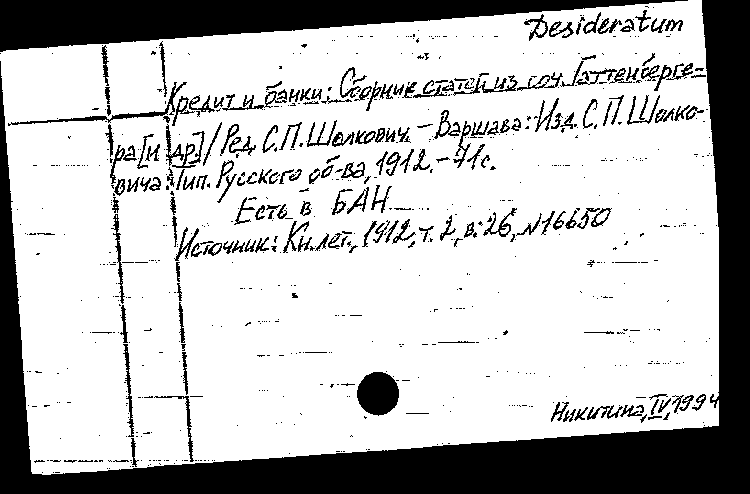 Desideratum
Кредит и банки: Сборник статей из соч. Гаттенберге-
ра [и др.] / Ред. С.П. Шолкович. – Варшава: Изд. С.П. Шолко-
вича: Тип. Русского об-ва, 1912. – 71 с.
Есть в БАН
Источник: Кн. лет., 1912, т. 2, в. 26, N 16650
Никитина, IV, 1994